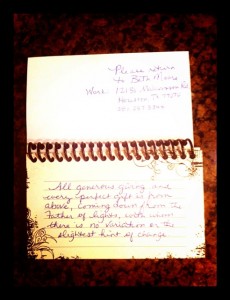 Please return
to Beth Moore
Work:
Houston, Tx
All generous giving and
every perfect gift is from
above, coming down from the
Father of lights, with whom
there is no variation or the
slightest hint of change